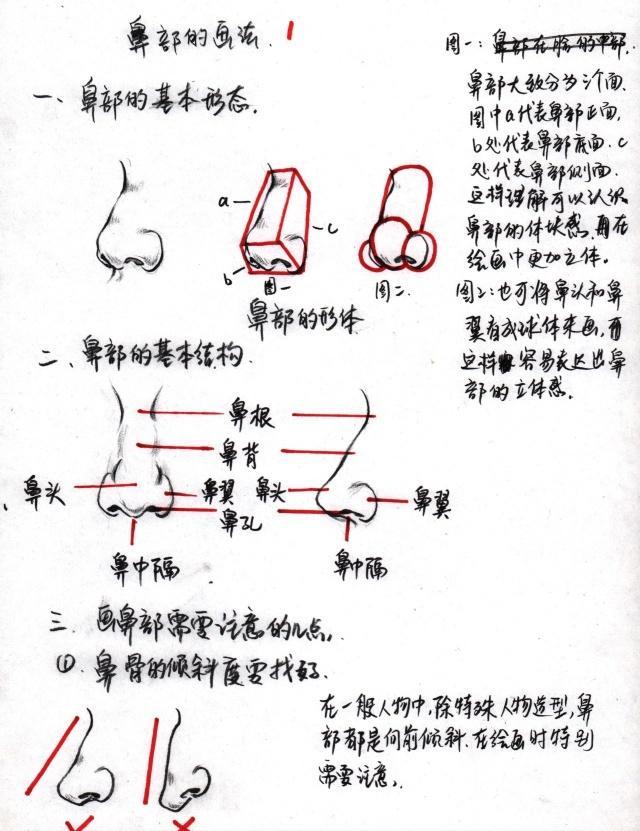 鼻部的画法. 1
一、鼻部的基本形态.
a
c
b
图一
图二.
鼻部的形体
图一:
鼻部大致分为三个面.
图中a代表鼻部正面,
b处代表鼻部底面. c
处代表鼻部侧面.
这样理解可以认识
鼻部的体块感.
绘画中更加立体。
图二:也可将鼻头和鼻
翼看成球体来画,而
这样 容易表达出鼻
部的立体感.
二、鼻部的基本结构.
鼻根
鼻背
鼻头
鼻翼
鼻头
鼻翼
鼻孔
鼻中隔
鼻中隔
三. 画鼻部需要注意的几点.
①. 鼻骨的倾斜度要找好.
在一般人物中,除特殊人物造型,鼻
部都是向前倾斜.在绘画时特别
需要注意.